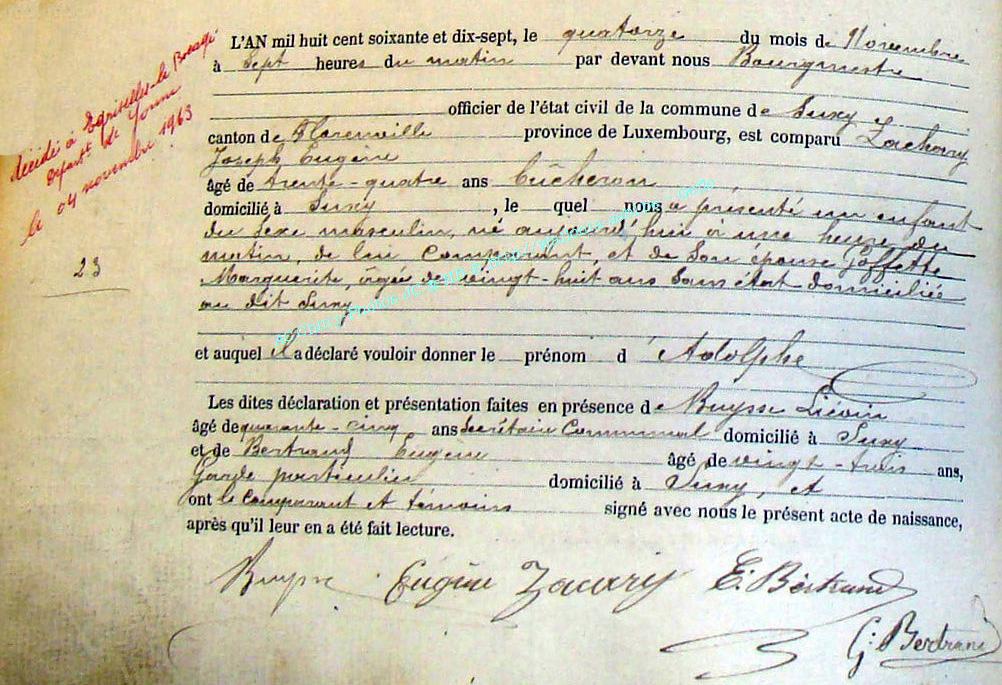 décédé à Egriselles-le-Bocage
départt de Yonne
le 04 novembre 1963
23
L'AN mil huit cent soixante et dix-sept, le quatorze du mois de Novembre
à sept heures du matin par devant nous Bourgmestre
officier de l'état civil de la commune de Suxy
canton de Florenville province de Luxembourg, est comparu Zachary
Joseph Eugène
âgé de trente-quatre ans bûcheron
domicilié à Suxy, le quel nous a présenté un enfant
du sexe masculin, né aujourd'hui à une heure du
matin, de lui comparant, et de son épouse Goffette
Marguerite, âgée de vingt-huit ans sans état domiciliée
au dit Suxy
et auquel il a déclaré vouloir donner le prénom d Adolphe
Les dites déclaration et présentation faites en présence de Buysse Liévin
âgé de quarante-cinq ans Secrétaire Communal domicilié à Suxy
et de Bertrand Eugène âgé de vingt-trois ans,
Garde particulier domicilié à Suxy, et
ont le comparant et témoins signé avec nous le présent acte de naissance,
après qu'il leur en a été fait lecture.
Buysse Eugène Zacary E. Bertrand
G. Bertrand